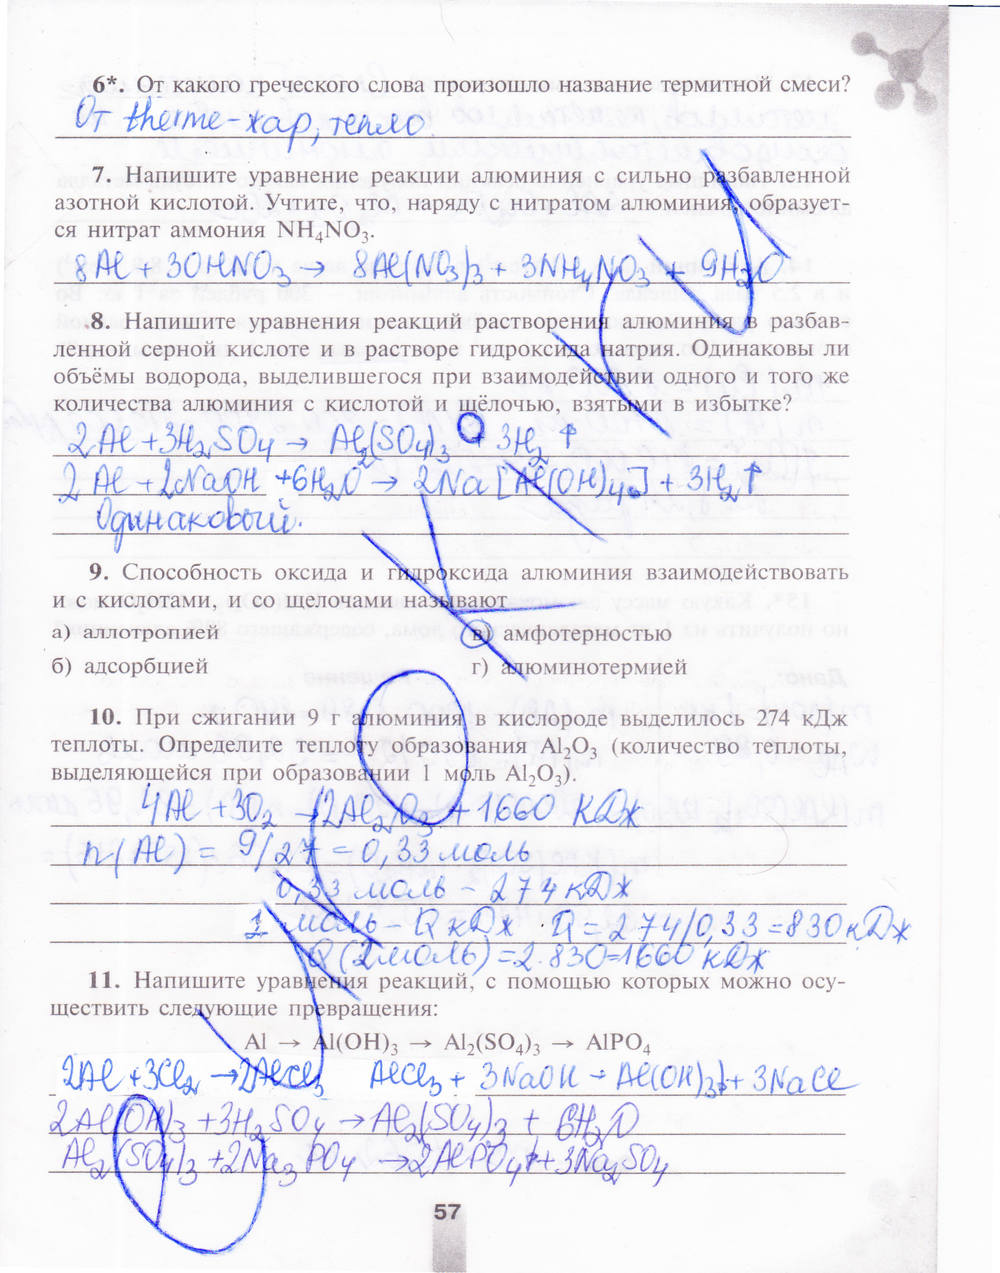 6*. От какого греческого слова произошло название термитной смеси?
От therme-жар, тепло
7. Напишите уравнение реакции алюминия с сильно разбавленной
азотной кислотой. Учтите, что, наряду с нитратом алюминия, образует-
ся нитрат аммония NH₄NO₃.
8Al + 30HNO₃ → 8Al(NO₃)₃ + 3NH₄NO₃ + 9H₂O
8. Напишите уравнения реакций растворения алюминия в разбав-
ленной серной кислоте и в растворе гидроксида натрия. Одинаковы ли
объёмы водорода, выделившегося при взаимодействии одного и того же
количества алюминия с кислотой и щёлочью, взятыми в избытке?
2Al + 3H₂SO₄ → Al₂(SO₄)₃ + 3H₂↑
2Al + 2NaOH + 6H₂O → 2Na[Al(OH)₄] + 3H₂↑
Одинаковый.
9. Способность оксида и гидроксида алюминия взаимодействовать
и с кислотами, и со щёлочами называют
а) аллотропией в) амфотерностью
б) адсорбцией г) алюминотермией
10. При сжигании 9 г алюминия в кислороде выделилось 274 кДж
теплоты. Определите теплоту образования Al₂O₃ (количество теплоты,
выделяющейся при образовании 1 моль Al₂O₃).
4Al + 3O₂ → 2Al₂O₃ + 1660 КДж
n(Al) = 9/27 = 0,33 моль
0,33 моль - 274 кДж
1 моль - Q кДж Q = 274/0,33 = 830 кДж
Q (2 моль) = 2·830 = 1660 кДж
11. Напишите уравнения реакций, с помощью которых можно осу-
ществить следующие превращения:
Al → Al(OH)₃ → Al₂(SO₄)₃ → AlPO₄
2Al + 3Cl₂ → 2AlCl₃ AlCl₃ + 3NaOH → Al(OH)₃↓ + 3NaCl
2Al(OH)₃ + 3H₂SO₄ → Al₂(SO₄)₃ + 6H₂O
Al₂(SO₄)₃ + 2Na₃PO₄ → 2AlPO₄↓ + 3Na₂SO₄
57